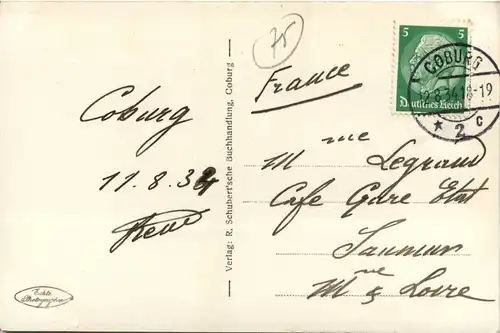 Coburg
11.8.34
Verlag: R. Schubert'sche Buchhandlung, Coburg
75
France
5 5
Deutsches Reich
COBURG
.8.34.18-19
* 2 c
Mme Legrand
Cafe Gare Etat
Saumur
Mne & Loire
Echte
Photographie